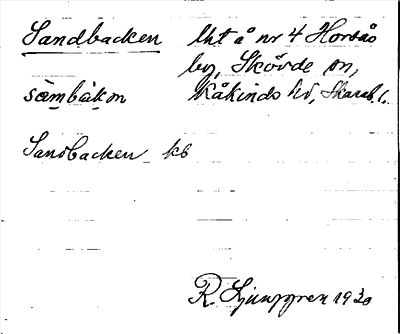 Sandbacken lht å nr 4 Horsås
by, Skövde sn,
sàmbàkon Kåkinds hd, Skarab. l.
Sandbacken kb
R. Ljunggren 1930